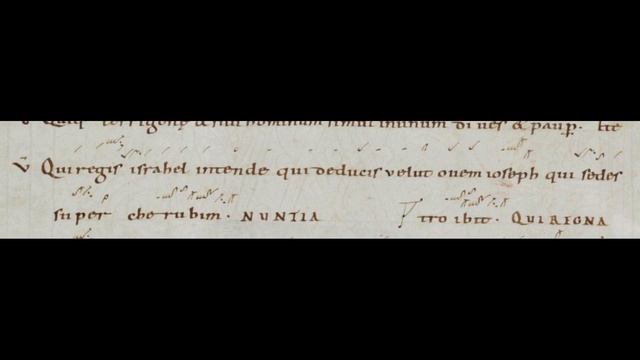 Quiq terrigenę & filii hominum simul inunum dives & paup. Ite
V Qui regis israhel intende qui deducis velut ovem ioseph qui sedes
super cherubim. NUNTIA tro ibit. QUI REGNA